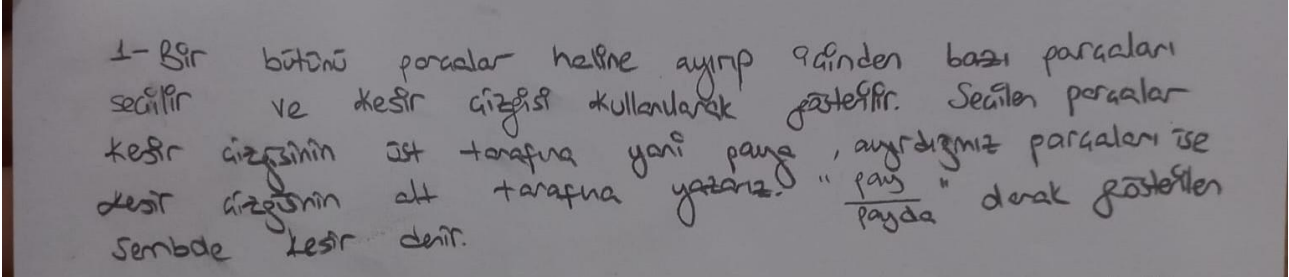 1- Bir bütünü parçalar haline ayırıp içinden bazı parçaları
seçilir ve kesir çizgisi kullanılarak gösterilir. Seçilen parçalar
kesir çizgisinin üst tarafına yani paya, ayırdığımız parçaları ise
kesir çizgisinin alt tarafına yazarız. " pay/payda " olarak gösterilen
sembole kesir denir.